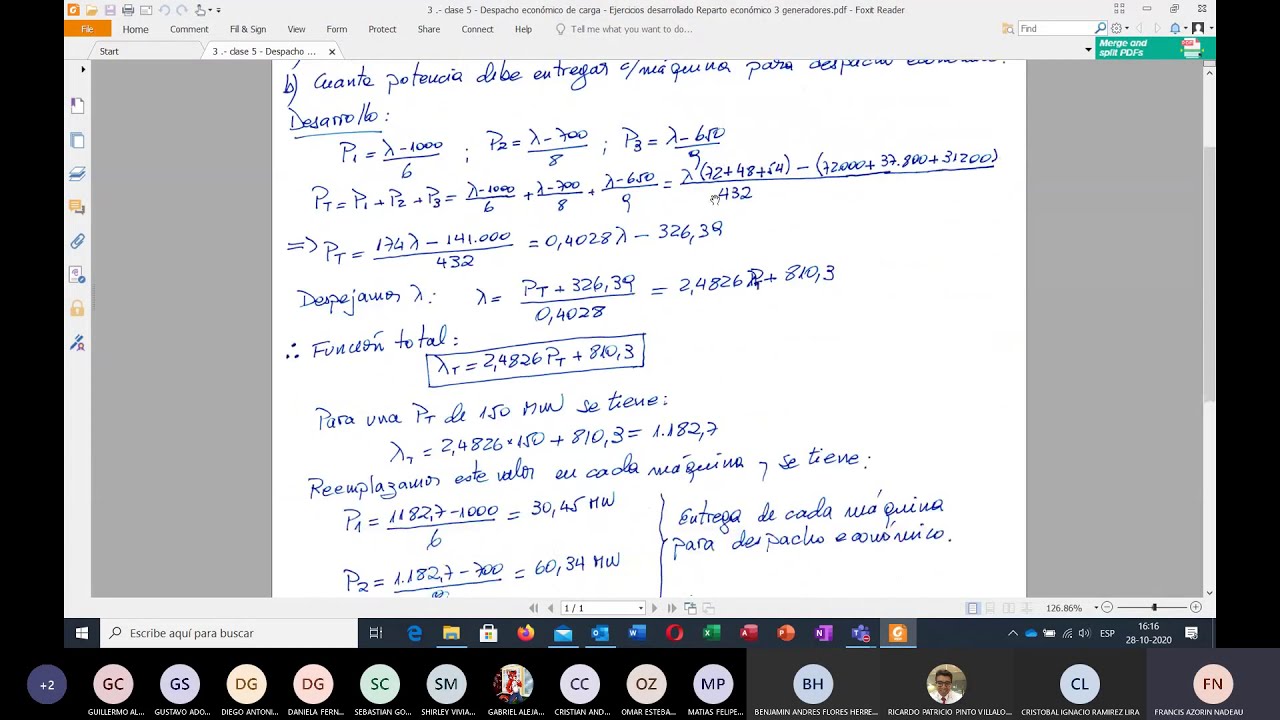 3 .- clase 5 - Despacho económico de carga - Ejercicios desarrollado Reparto económico 3 generadores.pdf - Foxit Reader
File Home Comment Fill & Sign View Form Protect Share Connect Help Tell me what you want to do... Find
Start 3 .- clase 5 - Despacho ... Merge and split PDFs
b) Cuanta potencia debe entregar c/máquina para despacho económico.
Desarrollo:
P1 = λ-1000/6 ; P2 = λ-700/8 ; P3 = λ-650/9
PT = P1 + P2 + P3 = λ-1000/6 + λ-700/8 + λ-650/9 = λ(72+48+54) - (72000+37.800+31200)/432
=> PT = 174λ - 141.000/432 = 0,4028λ - 326,39
Despejamos λ: λ = PT + 326,39/0,4028 = 2,4826 PT + 810,3
∴ Función total:
λT = 2,4826 PT + 810,3
Para una PT de 150 MW se tiene:
λT = 2,4826*150 + 810,3 = 1.182,7
Reemplazamos este valor en cada máquina, se tiene:
P1 = 1182,7-1000/6 = 30,45 MW
P2 = 1.182,7-700 = 60,34 MW
Entrega de cada máquina
para despacho económico.
1 / 1 126.86%
Escribe aquí para buscar ESP 16:16
28-10-2020
+2 GC GS DG DG SC SM CC OZ MP BH CL FN
GUILLERMO AL... GUSTAVO ADO... DIEGO ANTONI... DANIELA FERN... SEBASTIAN GO... SHIRLEY VIVIA... GABRIEL ALEJA... CRISTIAN AND... OMAR ESTEBA... MATIAS FELIPE... BENJAMIN ANDRES FLORES HERRE... RICARDO PATRICIO PINTO VILLALO... CRISTOBAL IGNACIO RAMIREZ LIRA FRANCIS AZORIN NADEAU